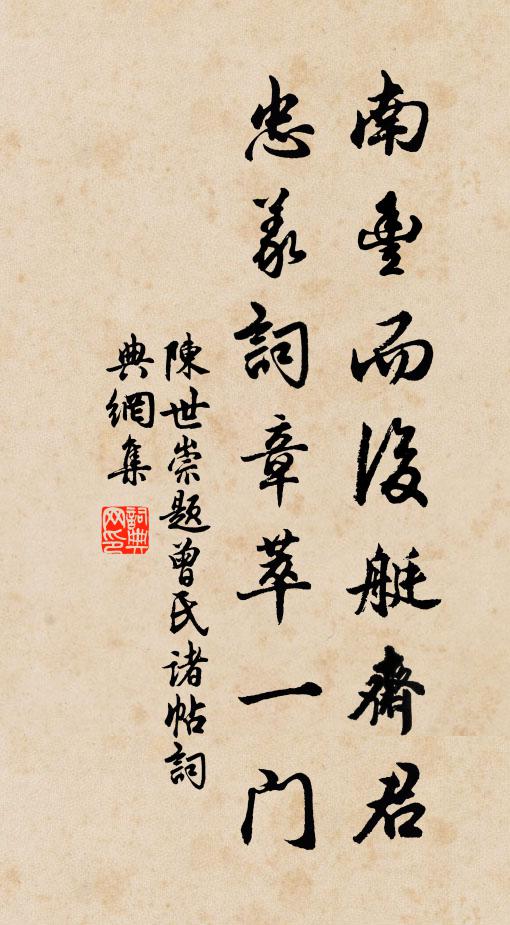 南豐而後艇齋君
忠義詞章萃一門
陳世崇題曾氏諸帖詞
典網集
詞典網印